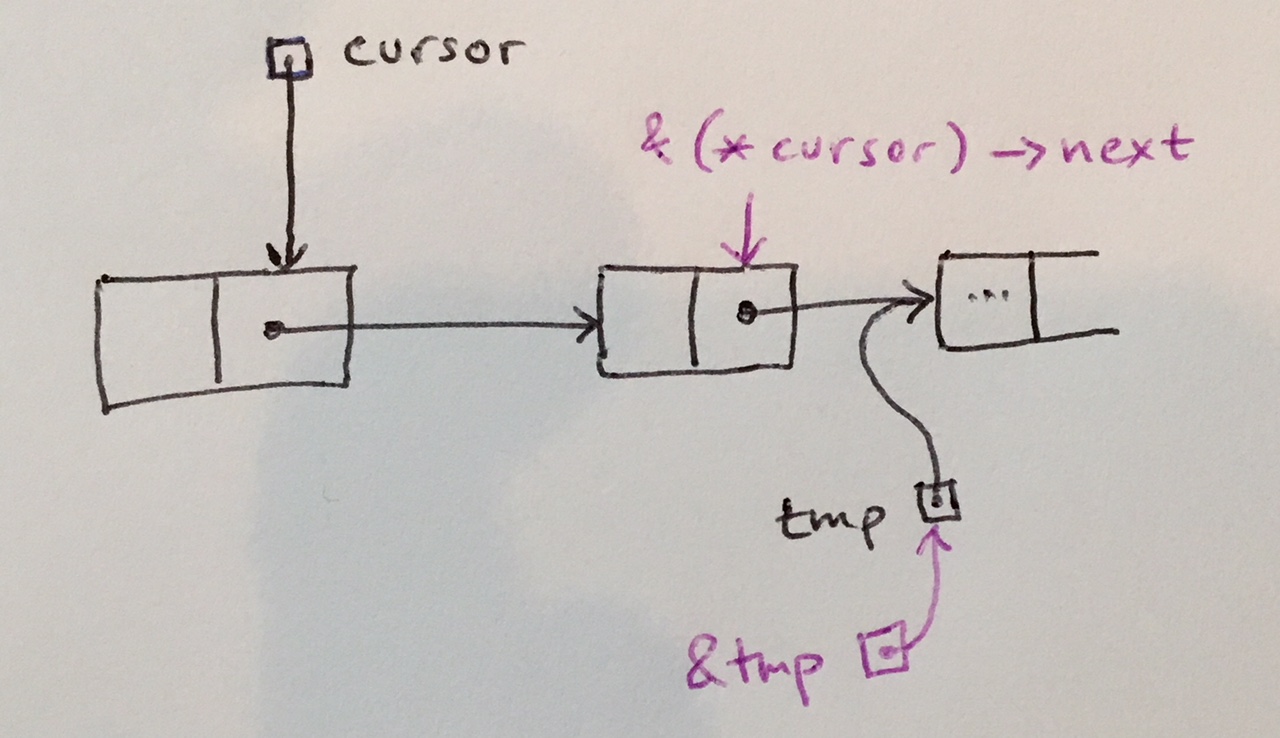 cursor
& (* cursor) -> next
...
tmp
&tmp